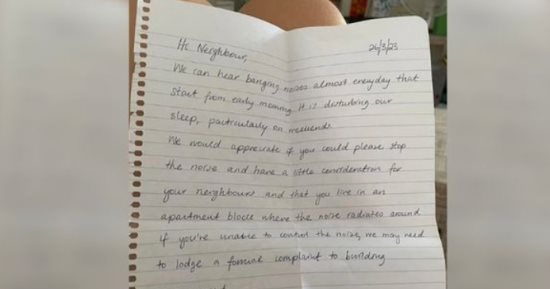 Hi Neighbour,
26/3/23
We can hear banging noises almost everyday that
start from early morning. It is disturbing our
sleep, particularly on weekends.
We would appreciate if you could please stop
the noise and have a little consideration for
your neighbours and that you live in an
apartment block where the noise radiates around
if you're unable to control the noise, we may need
to lodge a formal complaint to building